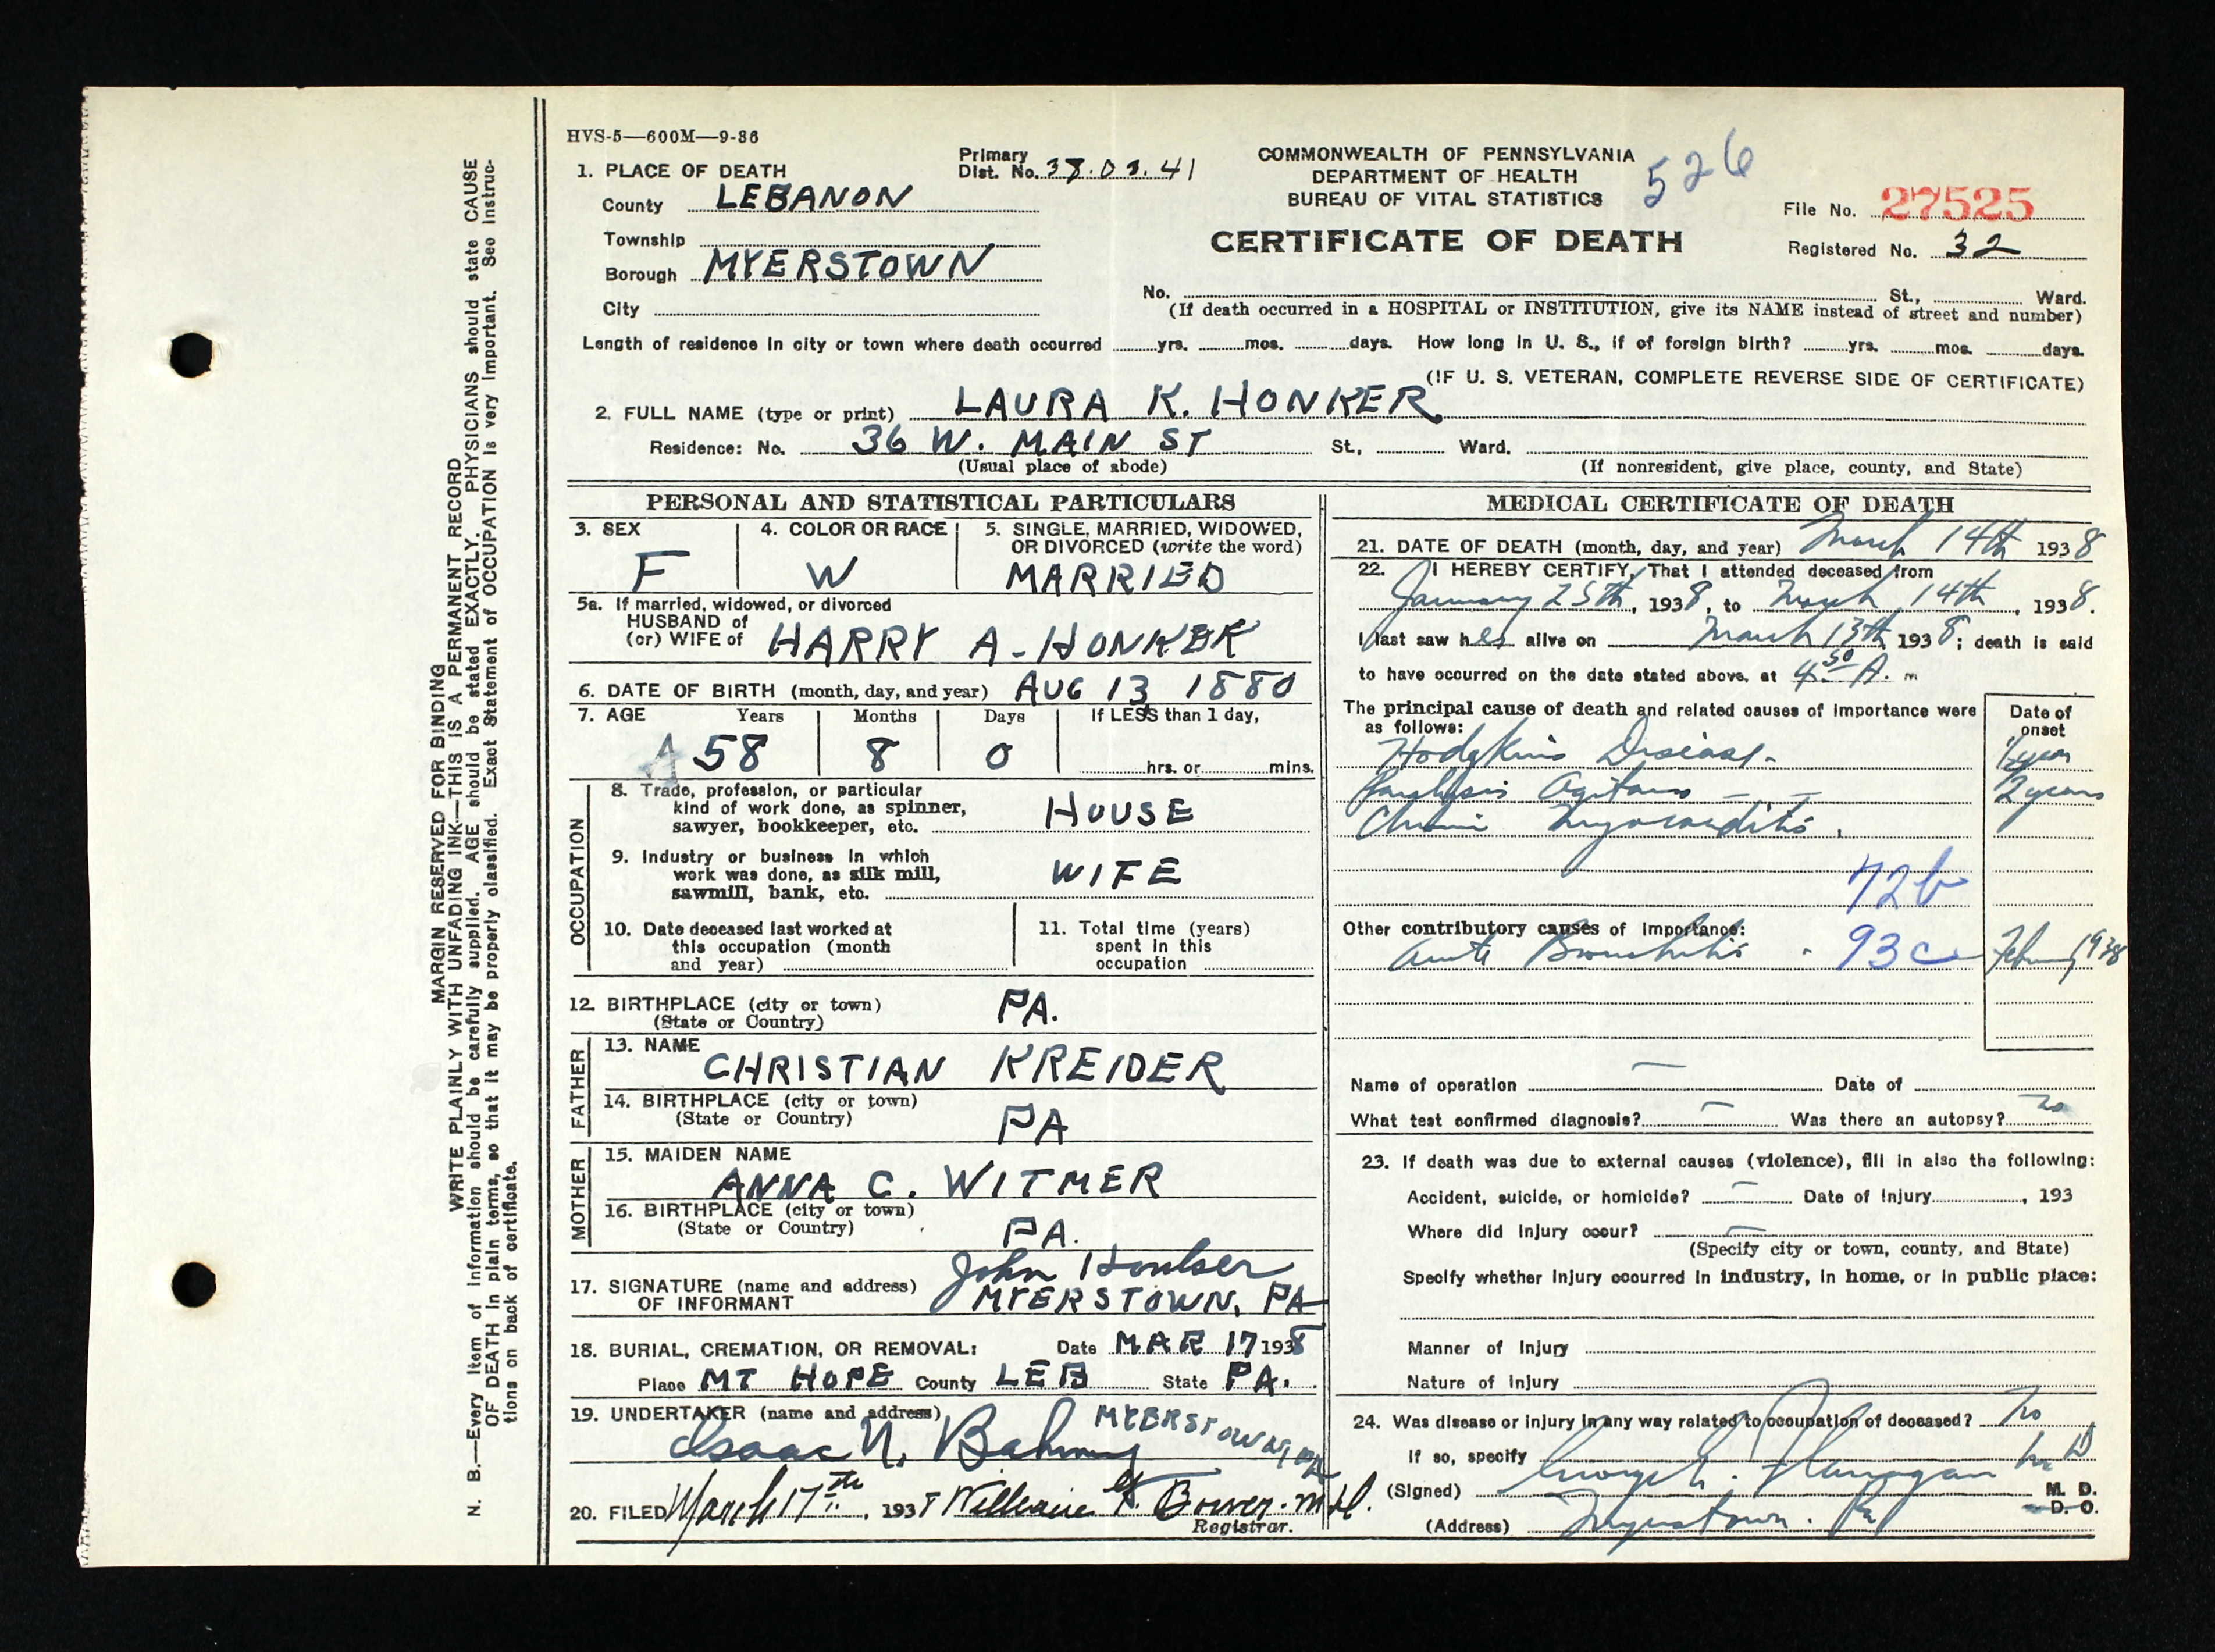 HVS-5—600M—9-36
1. PLACE OF DEATH
County LEBANON
Township
Borough MYERSTOWN
City
Primary
Dist. No. 38.03.41
COMMONWEALTH OF PENNSYLVANIA
DEPARTMENT OF HEALTH
BUREAU OF VITAL STATISTICS
CERTIFICATE OF DEATH
526
File No. 27525
Registered No. 32
No. St., Ward.
(If death occurred in a HOSPITAL or INSTITUTION, give its NAME instead of street and number)
Length of residence in city or town where death occurred yrs. mos. days. How long in U. S., if of foreign birth? yrs. mos. days.
(IF U. S. VETERAN, COMPLETE REVERSE SIDE OF CERTIFICATE)
2. FULL NAME (type or print) LAURA K. HONKER
Residence: No. 36 W. MAIN ST St., Ward.
(Usual place of abode)
(If nonresident, give place, county, and State)
PERSONAL AND STATISTICAL PARTICULARS
3. SEX
F
4. COLOR OR RACE
W
5. SINGLE, MARRIED, WIDOWED,
OR DIVORCED (write the word)
MARRIED
5a. If married, widowed, or divorced
HUSBAND of
(or) WIFE of HARRY A. HONKER
6. DATE OF BIRTH (month, day, and year) AUG 13 1880
7. AGE Years Months Days If LESS than 1 day,
58 8 0 hrs. or mins.
OCCUPATION
8. Trade, profession, or particular
kind of work done, as spinner,
sawyer, bookkeeper, etc. HOUSE
9. Industry or business in which
work was done, as silk mill,
sawmill, bank, etc. WIFE
10. Date deceased last worked at
this occupation (month
and year)
11. Total time (years)
spent in this
occupation
12. BIRTHPLACE (city or town)
(State or Country) PA.
FATHER
13. NAME
CHRISTIAN KREIDER
14. BIRTHPLACE (city or town)
(State or Country) PA
MOTHER
15. MAIDEN NAME
ANNA C. WITMER
16. BIRTHPLACE (city or town)
(State or Country) PA.
17. SIGNATURE (name and address)
OF INFORMANT
John
MYERSTOWN, PA
18. BURIAL, CREMATION, OR REMOVAL: Date MAR 17 1938
Place MT HOPE County LEB State PA.
19. UNDERTAKER (name and address) MYERSTOWN, PA
Isaac N. Bahney
20. FILED March 17th, 1938 William Bower. M.D.
Registrar.
MEDICAL CERTIFICATE OF DEATH
21. DATE OF DEATH (month, day, and year) March 14th 1938
22. I HEREBY CERTIFY, That I attended deceased from
January 25th, 1938, to March 14th, 1938.
I last saw her alive on March 13th 1938; death is said
to have occurred on the date stated above, at 4:50 A. m
The principal cause of death and related causes of importance were
as follows:
Date of
onset
Hodgkins Disease - 1 year
Paralysis Agitans — — 2 years
Chronic Myocarditis.
72b
Other contributory causes of importance:
Acute Bronchitis . 93c February 1938
Name of operation — Date of
What test confirmed diagnosis? — Was there an autopsy? no
23. If death was due to external causes (violence), fill in also the following:
Accident, suicide, or homicide? — Date of injury , 193
Where did injury occur? —
(Specify city or town, county, and State)
Specify whether injury occurred in industry, in home, or in public place:
Manner of injury
Nature of injury
24. Was disease or injury in any way related to occupation of deceased? No
If so, specify
(Signed) George L. Flanagan M.D. M. D.
D. O.
(Address) Myerstown. Pa
MARGIN RESERVED FOR BINDING
WRITE PLAINLY WITH UNFADING INK—THIS IS A PERMANENT RECORD
N. B.—Every item of information should be carefully supplied. AGE should be stated EXACTLY. PHYSICIANS should state CAUSE
OF DEATH in plain terms, so that it may be properly classified. Exact Statement of OCCUPATION is very important. See instruc-
tions on back of certificate.